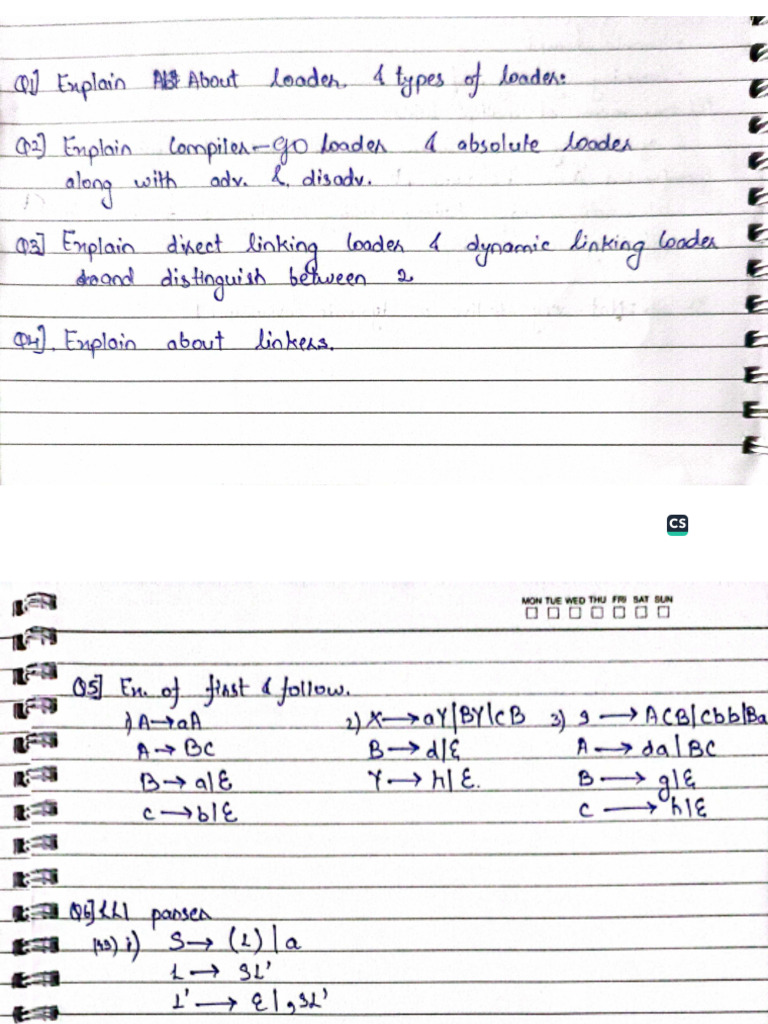 Q1] Explain About loader. & types of loader:
Q2] Explain Compiler-go loader & absolute loader
along with adv. & disadv.
Q3] Explain direct linking loader & dynamic linking loader
and distinguish between 2
Q4]. Explain about linkers.
CS
MON TUE WED THU FRI SAT SUN
Q5] Ex. of first & follow.
1) A→aA 2) X→aY|BY|cB 3) S→ACB|Cbb|Ba
A→BC B→d|ε A→da|BC
B→a|ε Y→h|ε. B→g|ε
C→b|ε C→h|ε
Q6] LL1 parser
i) S→(L)|a
L→SL'
L'→ε|,SL'